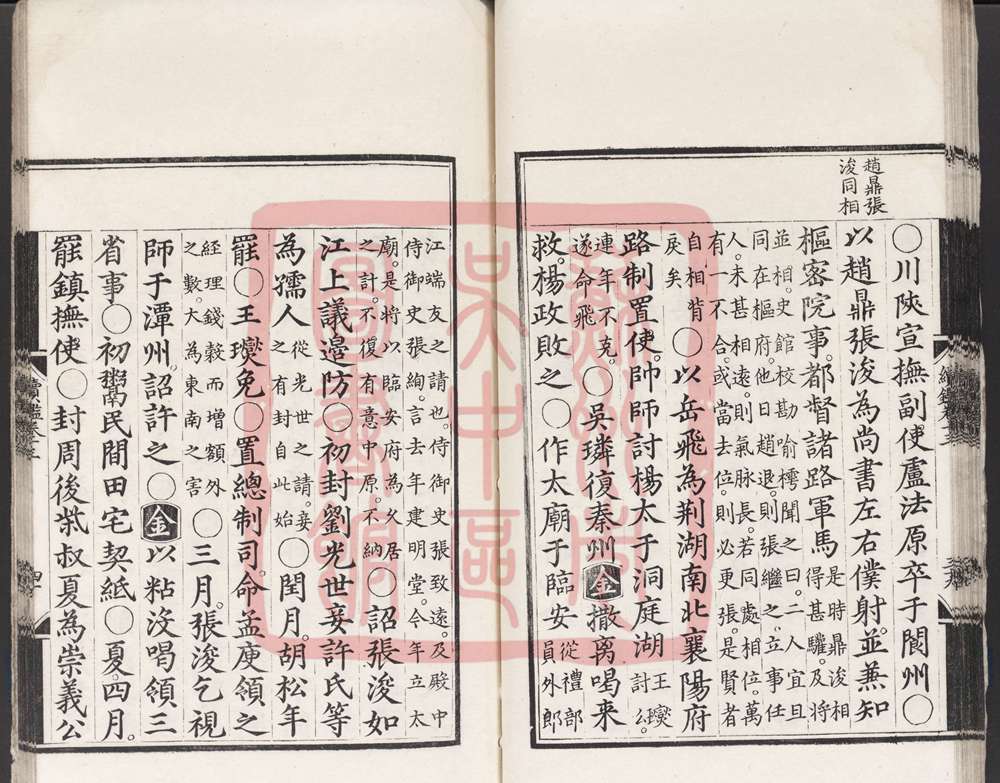 趙鼎張
浚同相
〇川陝宣撫副使盧法原卒于閬州〇
以趙鼎張浚為尚書左右僕射。並兼知
樞密院事。都督諸路軍馬是時鼎浚相
得甚驩。及將
並相。史館校勘喻樗聞之曰。二人宜且
同在樞府。他日趙退。則張繼之。立事任
人。未甚相遠。則氣脉長。若同處相位。萬
有一不合。或當去位。則必更張。是賢者
自相背
戾矣
〇以岳飛為荆湖南北襄陽府
路制置使。帥師討楊太于洞庭湖王𤫉
討公
連年不克。
遂命飛
〇吳璘復秦州金撒离喝来
救。楊政敗之〇作太廟于臨安從禮部
員外郎
江端友之請也。侍御史張致遠。及殿中
侍御史張絢。言去年建明堂。今年立太
廟。是將以臨安府為久居
之計。不復有意中原。不納
〇詔張浚如
江上議邊防〇初封劉光世妾許氏等
為孺人從光世之請。妾
之有封自此始
〇閏月。胡松年
罷〇王𤫉免〇置總制司。命孟庾領之
經理錢穀而增額外
之數。大為東南之害
〇三月。張浚乞視
師于潭州。詔許之〇金以粘沒喝領三
省事〇初鬻民間田宅契紙〇夏。四月。
罷鎮撫使〇封周後柴叔夏為崇義公
蘇州市
吳中區
圖書館